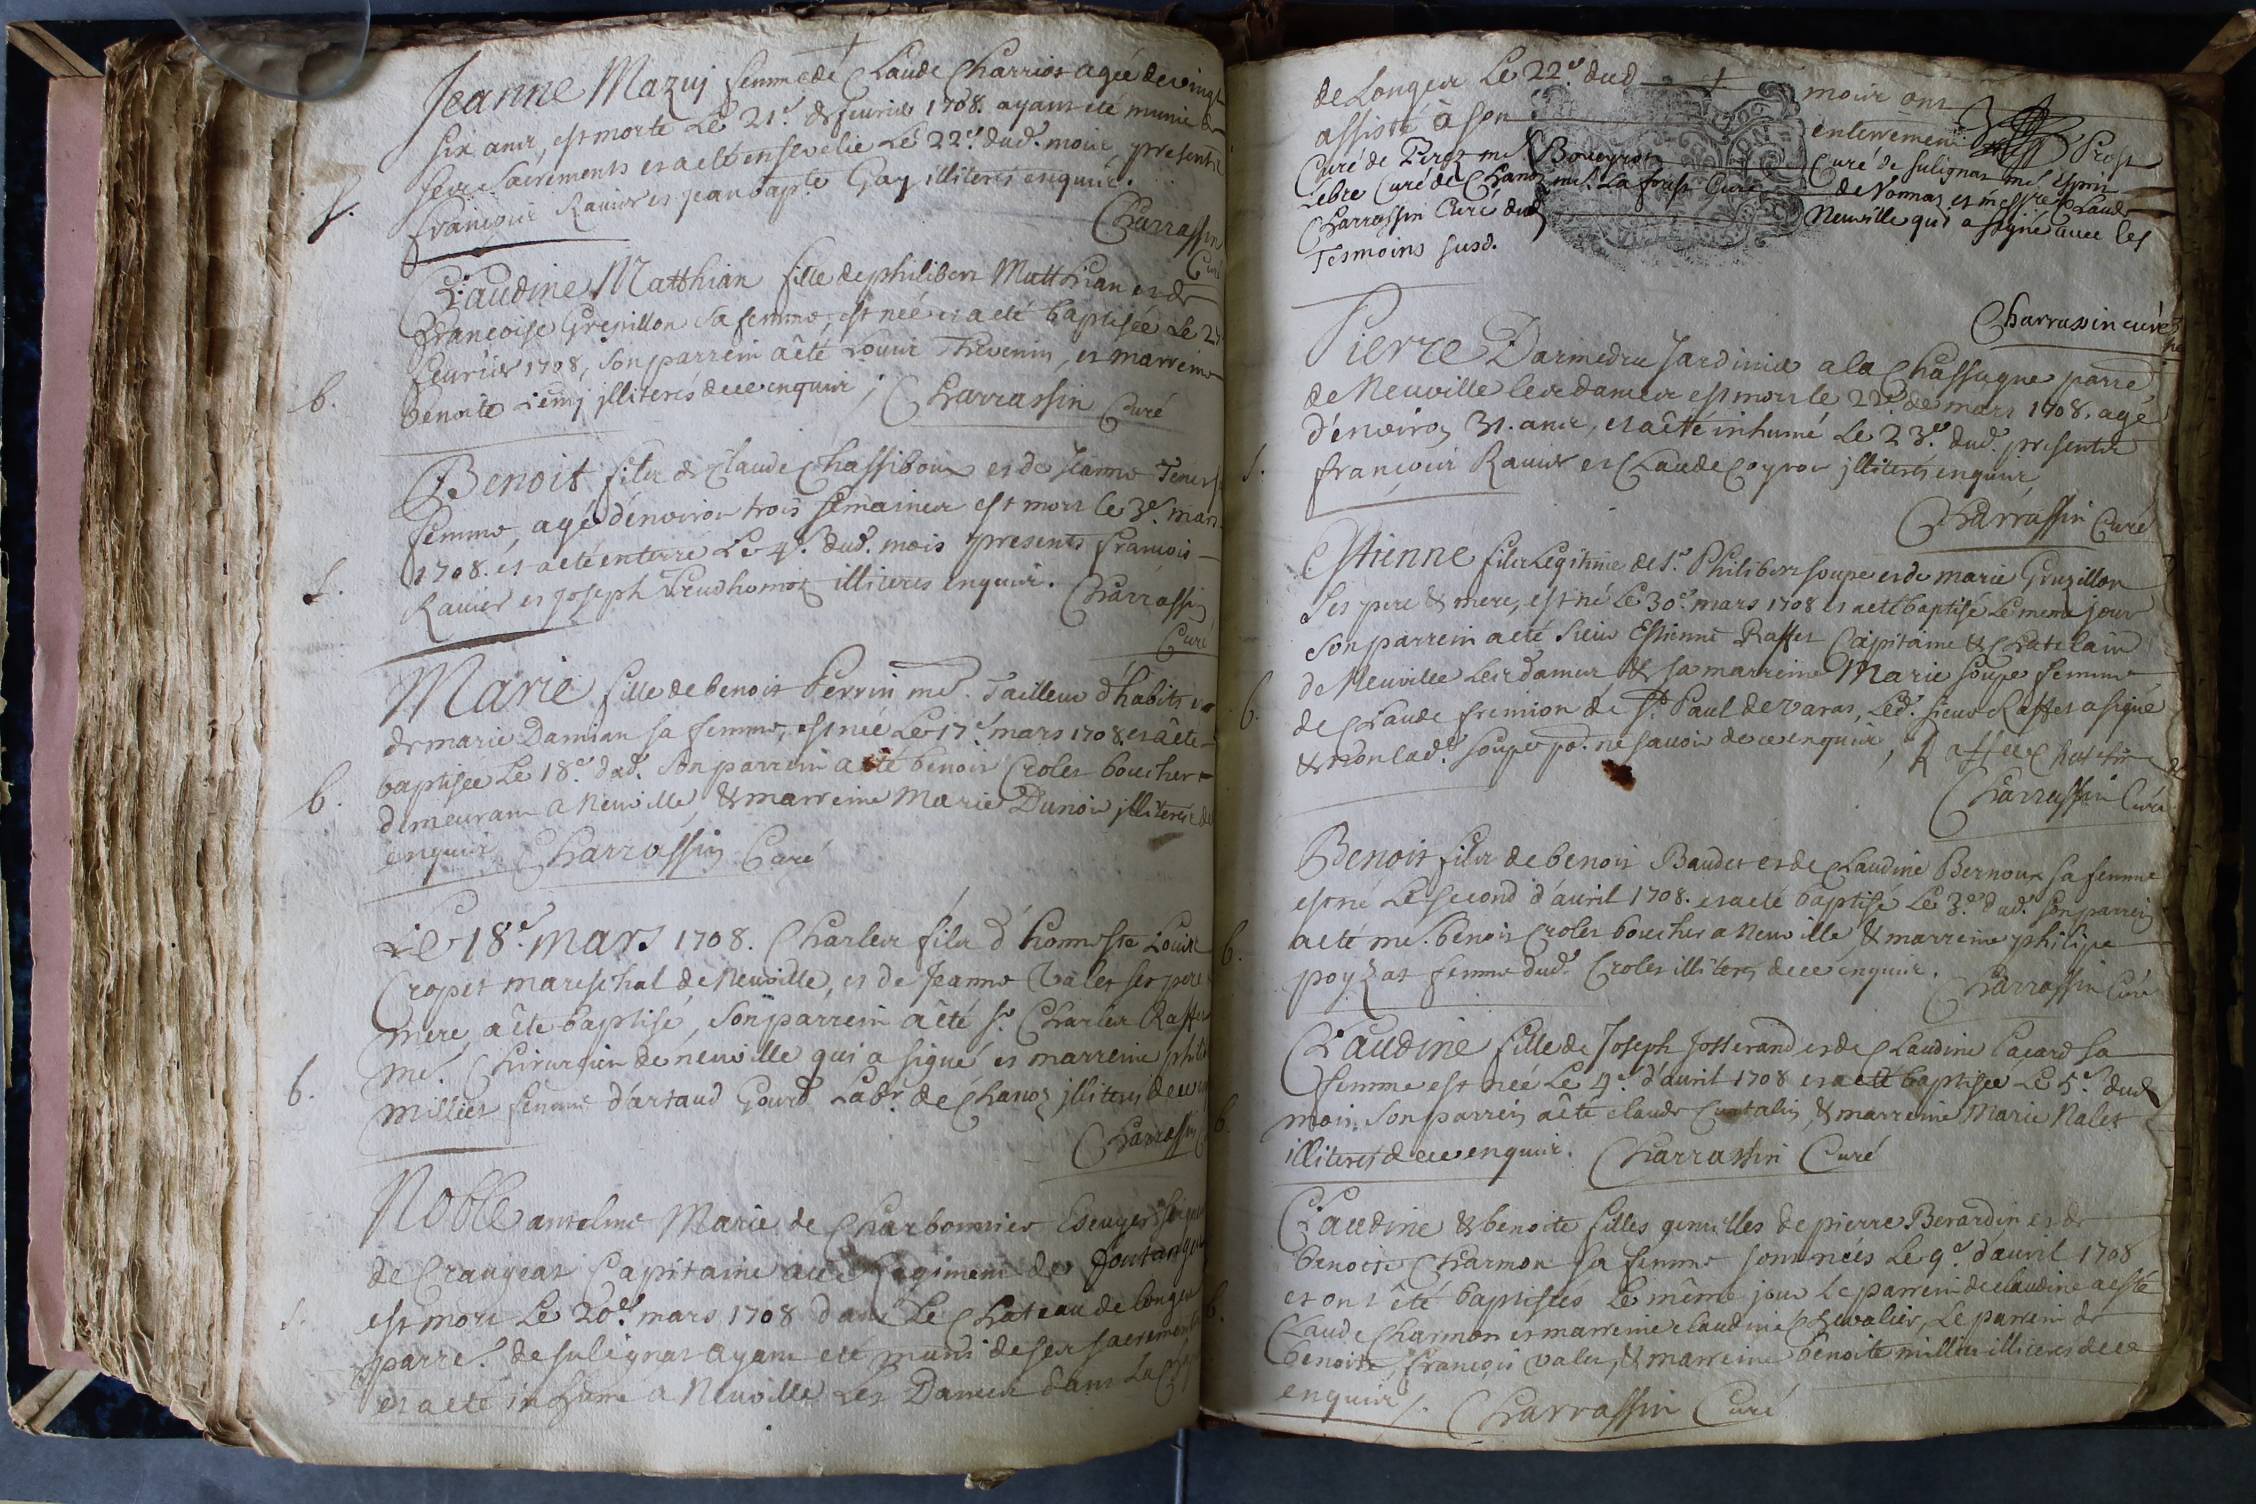 Jeanne Mazuy femme de Claude Charrios agée de vingt
six ans, est morte Le 21e. de feurier 1708. ayant été munie de
ses sacrements et a eté ensevelie Le 22e. dud. mois presents
S. françois Rauier et jean bapte Gay illiterés enquis.
Charrassin
Curé
Claudine Matthian fille de philibert Matthian et de
françoise Grenillon sa femme, est née et a eté baptisée Le
feurier 1708, son parrein a êté Louis Thevenin, et marreine
b. benoite illiterés de ce enquis, Charrassin Curé
Benoit fils de Claude Chassiboux et de Jeanne
femme, agé d'environ trois semaines est mort le 3e. mars
1708. et a eté enterré Le 4e. dud. mois presents francois
S. Rauier et joseph Preudhomoz illiteres enquis. Charrassin
Curé
Marie fille de benoit Perrin me. Tailleur d'habits et
de marie Damian sa femme, est née Le 17e. mars 1708. et a êté
baptisée Le 18e. dud. son parrein a eté benoit Croles boucher
b. demeurant a Neuville, & marreine Marie Dunois illiterés de
enquis Charrassin Curé
Le 18e. mars 1708. Charles fils d'honneste Louis
Cropet mareschal de Neuville, et de Jeanne Vales ses pere
mere, a êté baptisé, son parrein a êté sr. Charles Raffet
me. Chirurgien de neuville qui a signé et marreine
b. millier femme d'artaud Gourd Labr. de Chanoz illiterés de ce
Charrassin
Noble antelme Marie de Charbonnier Escuyer
de Crangeat Capitaine au Regiment de
est mort Le 20e. mars 1708 dans Le Chateau de longes
S. parre. de sulignat ayant eté muni de ses sacrements
et a eté inhumé a Neuville Les Dames dans La
de Longes Le 22e. dud moir ont
assisté à son enterrement Prost
Curé de Perez me. Boueyron Curé de sulignat me. Esprit
Lebre Curé de Chanoz me. La forest Curé de Vonnas et messire Claude
Charrassin Curé dud Neuville qui a signé auec les
Tesmoins susd.
Charrassin curé
Pierre Darmedru Jardinier a la Chassagne parre.
de Neuville les dames est mort le 22e. de mars 1708. agé
d'environ 31. ans, et a êté inhumé Le 23e. dud. presents
S. françois Rauier et Claude Coyron illiterés enquis
Charrassin Curé
Estienne fils Legitime de sr. Philibert soupe et de marie Gruzillon
ses pere & mere, est né Le 30e. mars 1708 et a eté baptisé Le meme jour
son parrein a eté sieur Estienne Raffet Capitaine & Chatelain
de Neuville Les dames & sa marreine Marie soupe femme
b. de Claude fremion de St. Paul de varas, Led. sieur Raffet a signé
& non lad. soupe po. ne savoir de ce enquis, Raffet Chatelain
Charrassin Curé
Benoit fils de benoit Baudet et de Claudine Bernoux sa femme
est né Le second d'auril 1708. et a eté baptisé Le 3e. dud. son parrein
b. a eté me. benoit Croles boucher a Neuville & marreine philipe
poyzat femme dud. Croles illiterés de ce enquis.
Charrassin Curé
Claudine fille de Joseph Josserand et de Claudine Lacard sa
femme est née Le 4e. d'auril 1708 et a eté baptisée Le 5e. dud
b. mois. son parrein a êté claude & marreine Marie Nalet
illiterés de ce enquis. Charrassin Curé
Claudine & benoite filles gemelles de pierre Berardin et de
benoite Charmon sa femme sont nées Le 9e. d'auril 1708
b. et ont êté baptisées Le même jour Le parrein de claudine a esté
Claude Charmon et marreine claudine Chevalier, Le parrein de
benoite, françois vales, & marreine benoite millier illiteres de ce
enquis. Charrassin Curé